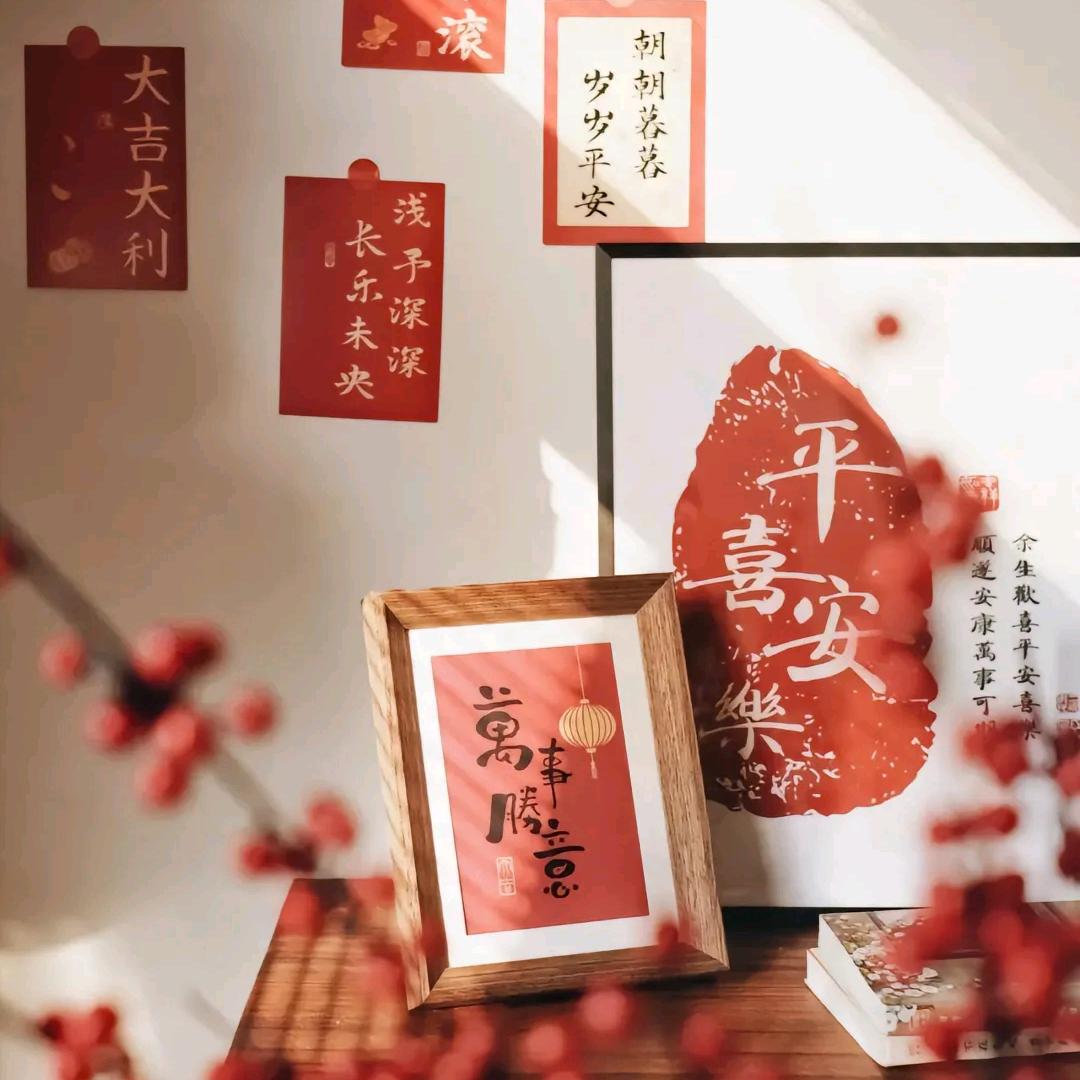 大吉大利
滚
浅予深深
长乐未央
朝朝暮暮
岁岁平安
平安
喜樂
余生歡喜平安喜樂
順遂安康萬事可
萬事
勝意
大吉